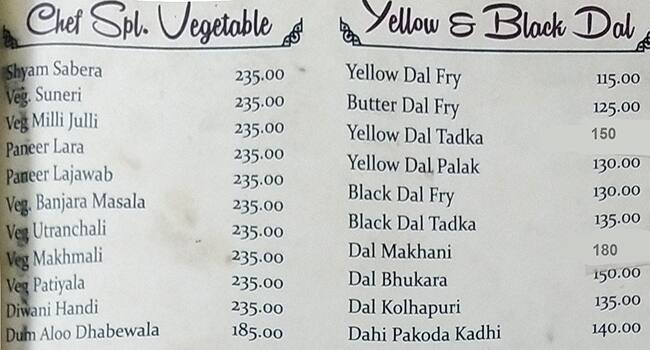 Chef Spl. Vegetable
Shyam Sabera 235.00
Veg. Suneri 235.00
Veg Milli Julli 235.00
Paneer Lara 235.00
Paneer Lajawab 235.00
Veg. Banjara Masala 235.00
Veg Utranchali 235.00
Veg Makhmali 235.00
Veg Patiyala 235.00
Diwani Handi 235.00
Dum Aloo Dhabewala 185.00
Yellow & Black Dal
Yellow Dal Fry 115.00
Butter Dal Fry 125.00
Yellow Dal Tadka 150
Yellow Dal Palak 130.00
Black Dal Fry 130.00
Black Dal Tadka 135.00
Dal Makhani 180
Dal Bhukara 150.00
Dal Kolhapuri 135.00
Dahi Pakoda Kadhi 140.00